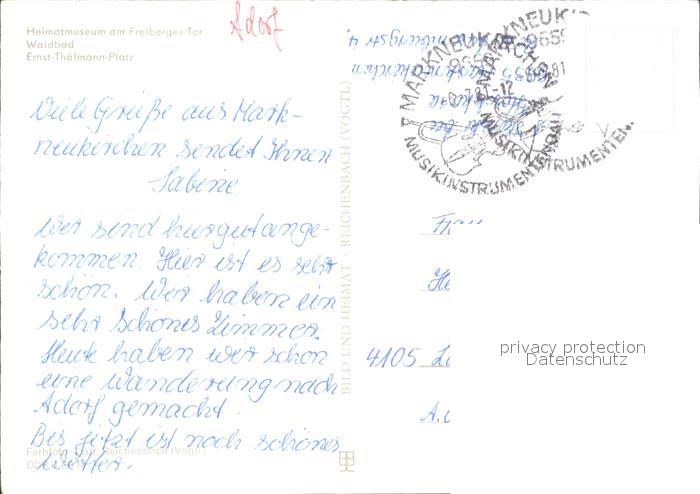 Heimatmuseum am Freiberger Tor
Waldbad
Ernst-Thälmann-Platz
Adorf
Viele Grüße aus Mark-
neukirchen sendet Ihnen
Sabine
Wir sind hier gut ange-
kommen. Hier ist es sehr
schön. Wir haben ein
sehr schönes Zimmer.
Heute haben wir schon
eine Wanderung nach
Adorf gemacht.
Bis jetzt ist noch schönes
Wetter.
Reichenbach (Vogtl.)
BILD UND HEIMAT · REICHENBACH (VOGTL)
MARKNEUKIRCHEN
MUSIKINSTRUMENTEN
4105
privacy protection
Datenschutz